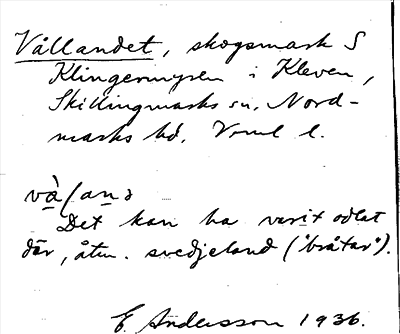 Vållandet, skogsmark S
Klingermyren i Kleven,
Skillingmarks sn, Nord-
marks hd, Verml l.
và̱laṉə
Det kan ha varit odlat
där, åtm. svedjeland ("bråtar").
E. Andersson 1936.